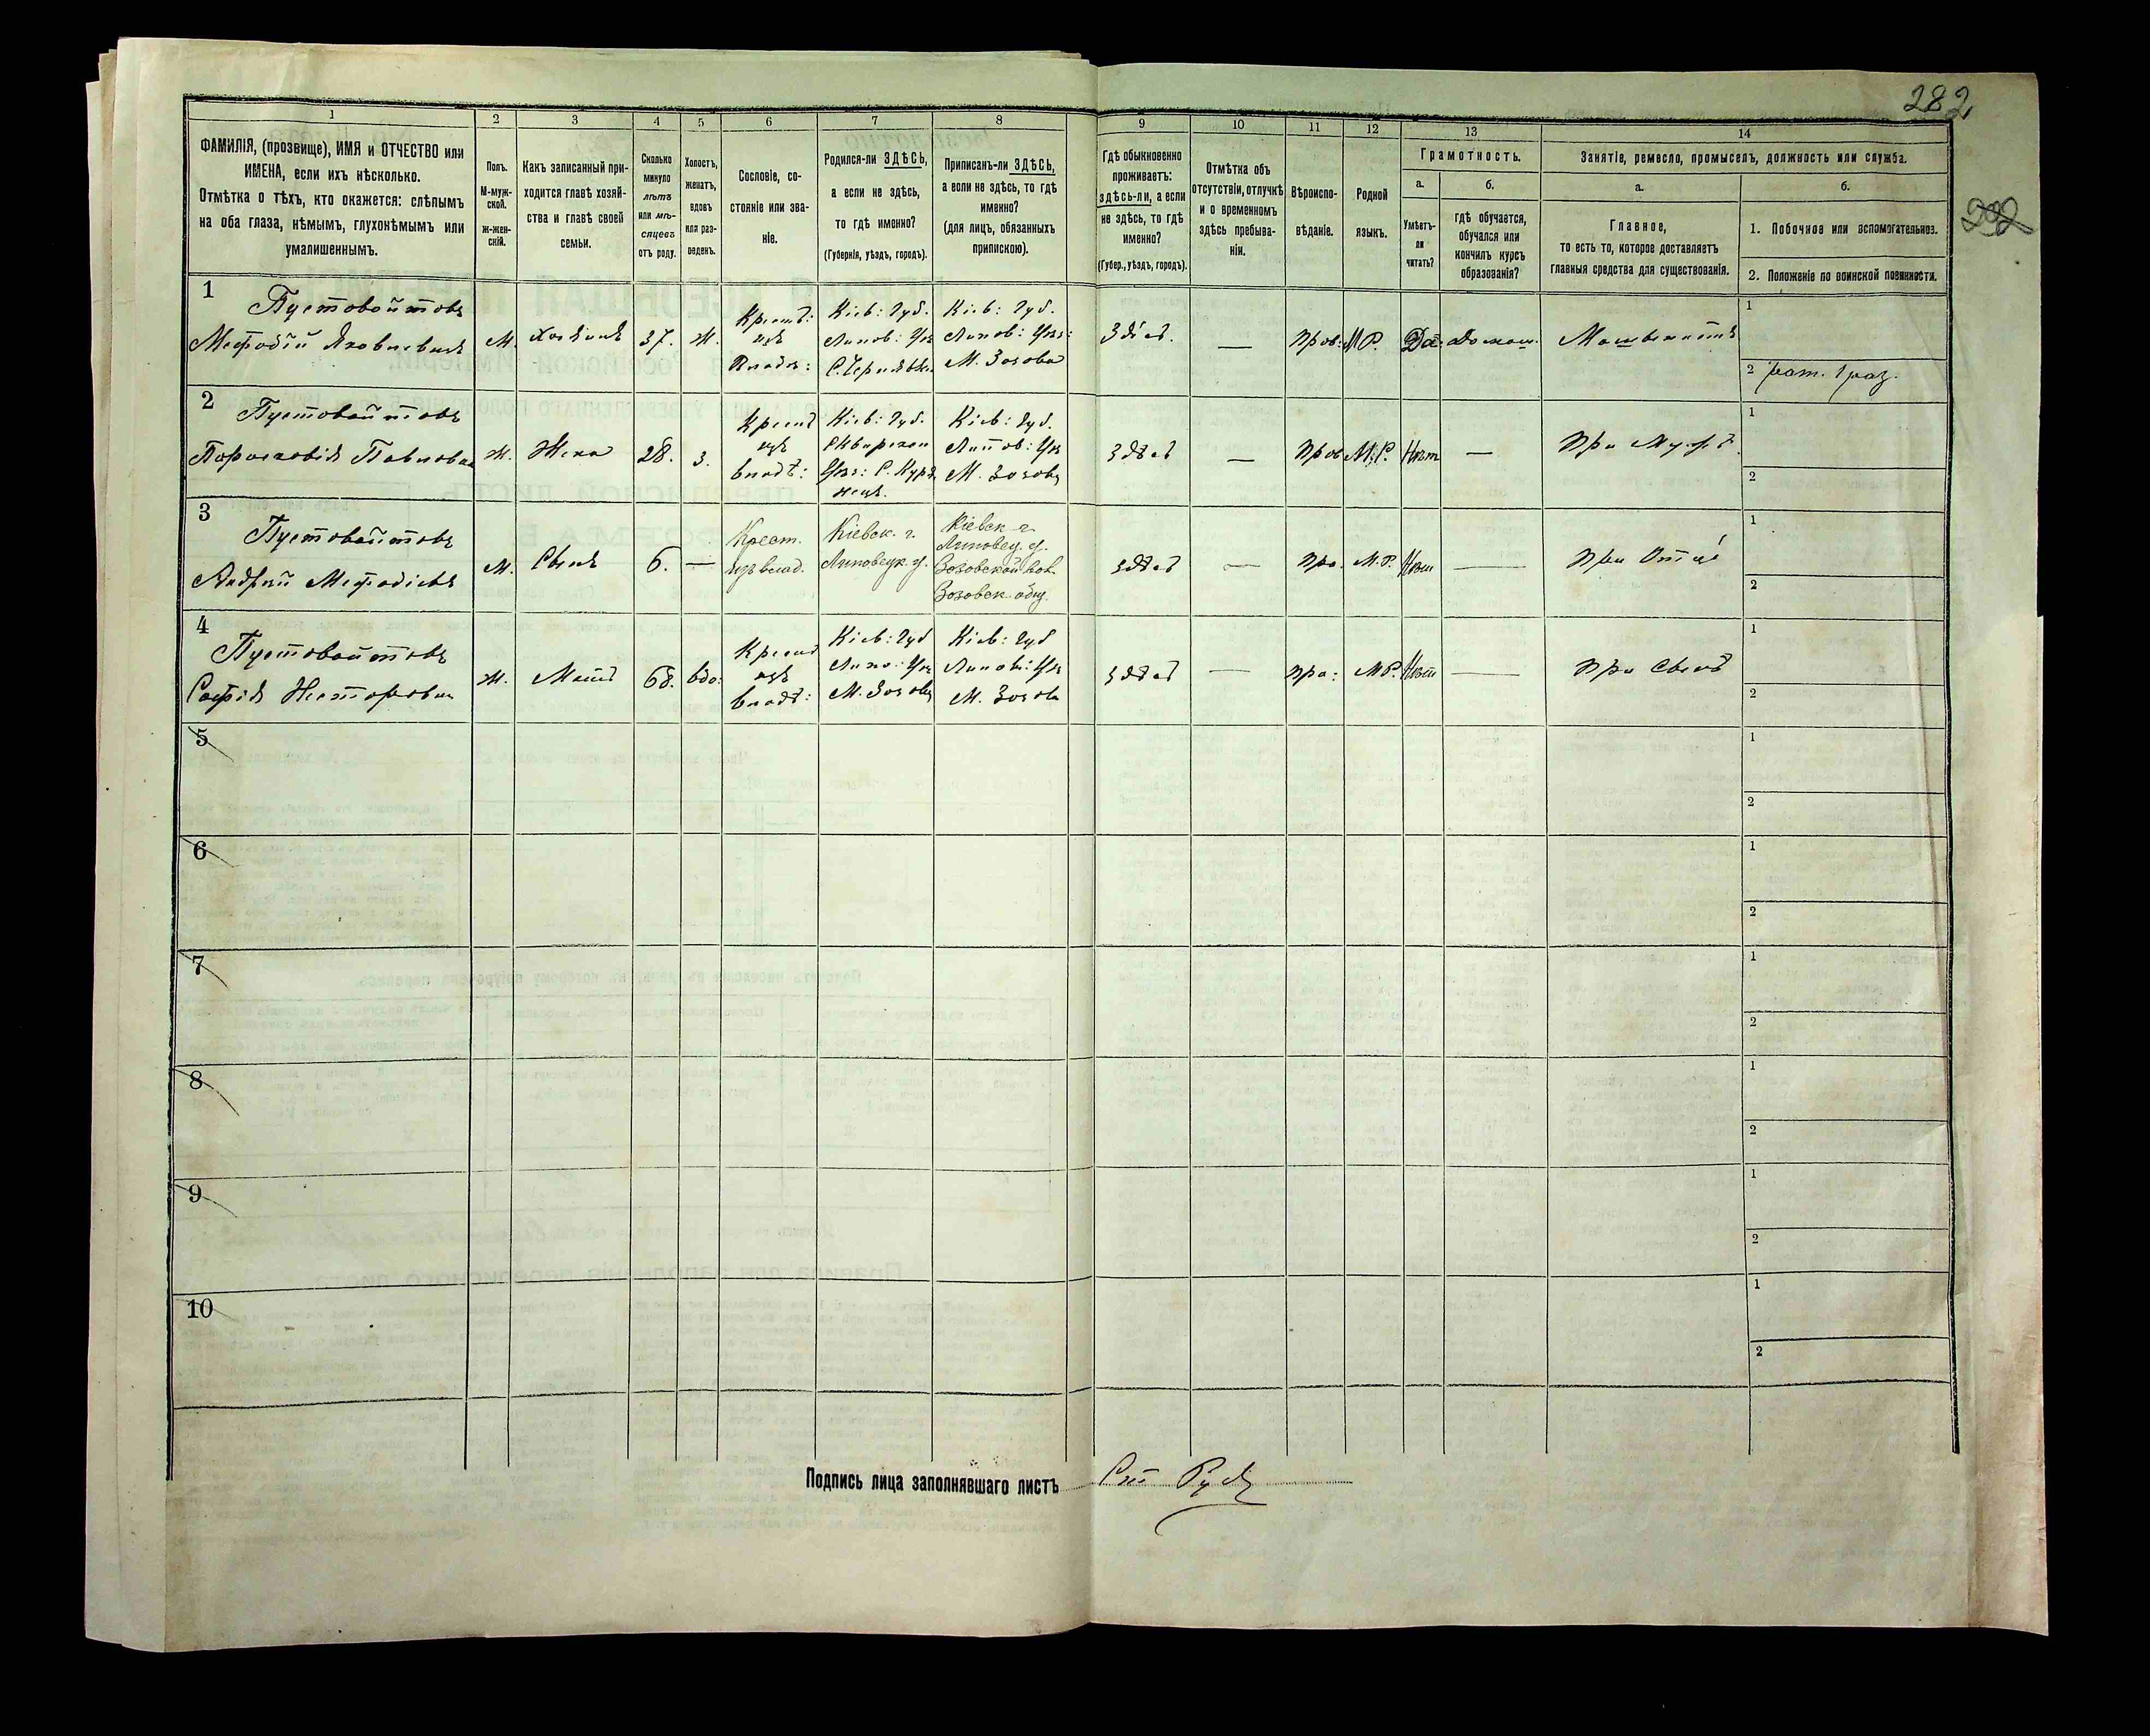 282
202
1
2
3
4
5
6
7
8
9
10
11
12
13
14
ФАМИЛІЯ, (прозвище), ИМЯ и ОТЧЕСТВО или
ИМЕНА, если ихъ нѣсколько.
Отмѣтка о тѣхъ, кто окажется: слѣпымъ
на оба глаза, нѣмымъ, глухонѣмымъ или
умалишеннымъ.
Полъ.
М-муж-
ской.
ж-жен-
скій.
Какъ записанный при-
ходится главѣ хозяй-
ства и главѣ своей
семьи.
Сколько
минуло
лѣтъ
или мѣ-
сяцевъ
отъ роду.
Холостъ,
женатъ,
вдовъ
или раз-
веденъ.
Сословіе, со-
стояніе или зва-
ніе.
Родился-ли ЗДѢСЬ,
а если не здѣсь,
то гдѣ именно?
(Губернія, уѣздъ, городъ).
Приписанъ-ли ЗДѢСЬ,
а если не здѣсь, то гдѣ
именно?
(для лицъ, обязанныхъ
припискою).
Гдѣ обыкновенно
проживаетъ:
здѣсь-ли, а если
не здѣсь, то гдѣ
именно?
(Губер., уѣздъ, городъ).
Отмѣтка объ
отсутствіи, отлучкѣ
и о временномъ
здѣсь пребыва-
ніи.
Вѣроиспо-
вѣданіе.
Родной
языкъ.
Грамотность.
а.
Умѣетъ-
ли
читать?
б.
гдѣ обучается,
обучался или
кончилъ курсъ
образованія?
Занятіе, ремесло, промыселъ, должность или служба.
а.
Главное,
то есть то, которое доставляетъ
главныя средства для существованія.
б.
1. Побочное или вспомогательное.
2. Положеніе по воинской повинности.
1
Пустовойтовъ
Мефодій Яковлевичъ
М.
Хозяинъ
37.
Ж.
Крест:
изъ
Владѣ:
Кіев: Губ.
Липов: Уѣз
С. Чернявк
Кіев: Губ.
Липов: Уѣз:
М. Зозова
Здѣсь.
—
Прав:
М Р.
Да.
Домаш.
1
2 рат. 1 раз.
2
Пустовойтовъ
Парасковія Павловна
Ж.
Жена
28.
З.
Крест
изъ
владѣ:
Кіев: Губ.
Сквирскаго
Уѣз: С.
Кіев: Губ.
Липов: Уѣз
М. Зозовъ
здѣсь
—
Прав
М. Р.
Нѣт
—
При Мужѣ.
1
2
3
Пустовойтовъ
Андрей Мефодіевъ
М.
Сынъ
6.
—
Крест.
изъ влад.
Кіевск. г.
Липовецк. у.
Кіевск г.
Липовец. у.
Зозовской вол.
Зозовск. общ.
здѣсь
—
Пра.
М. Р.
Нѣт
—
При Отцѣ
1
2
4
Пустовойтовъ
Софія Несторовна
Ж.
Мать
68.
вдо:
Крест
изъ
владѣ:
Кіев: Губ
Липо: Уѣз
М. Зозовъ
Кіев: Губ
Липов: Уѣз
М. Зозовъ
здѣсь
—
Пра:
М Р.
Нѣт
—
При Сынѣ
1
2
5
1
2
6
1
2
7
1
2
8
1
2
9
1
2
10
1
2
Подпись лица заполнявшаго листъ